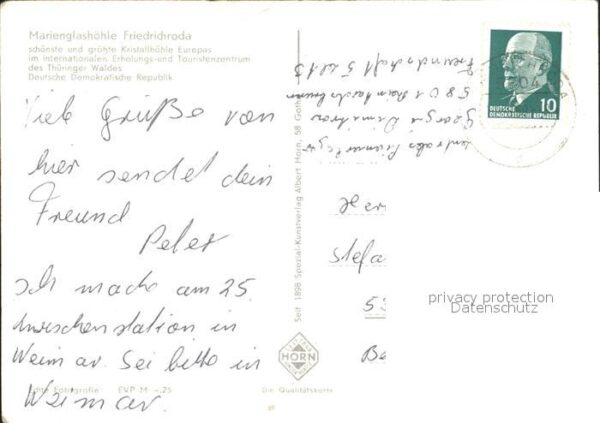 Marienglashöhle Friedrichroda
schönste und größte Kristallhöhle Europas
im internationalen Erholungs- und Touristenzentrum
des Thüringer Waldes
Deutsche Demokratische Republik
Viele Grüße von
hier sendet dein
Freund
Peter
Ich mache am 25.
zwischenstation in
Weimar. Sei bitte in
Weimar.
Echte Fotografie EVP M -,25
Die Qualitätskarte
Seit 1898 Spezial-Kunstverlag Albert Horn, 58 Gotha
HORN
Georgi Dimitrow
5801
Freundschaft 5
DEUTSCHE
DEMOKRATISCHE REPUBLIK
10
Her
Stefa
53
Be
privacy protection
Datenschutz